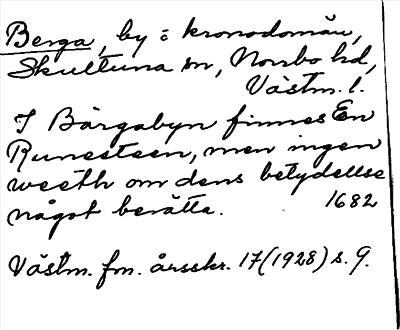 Berga, by å kronodomän,
Skultuna sn, Norrbo hd,
Västm. l.
I Bärgabyn finnes En
Runesteen, men ingen
weeth om dens betydellse
något berätta. 1682
Västm. fm. årsskr. 17(1928) s. 9.